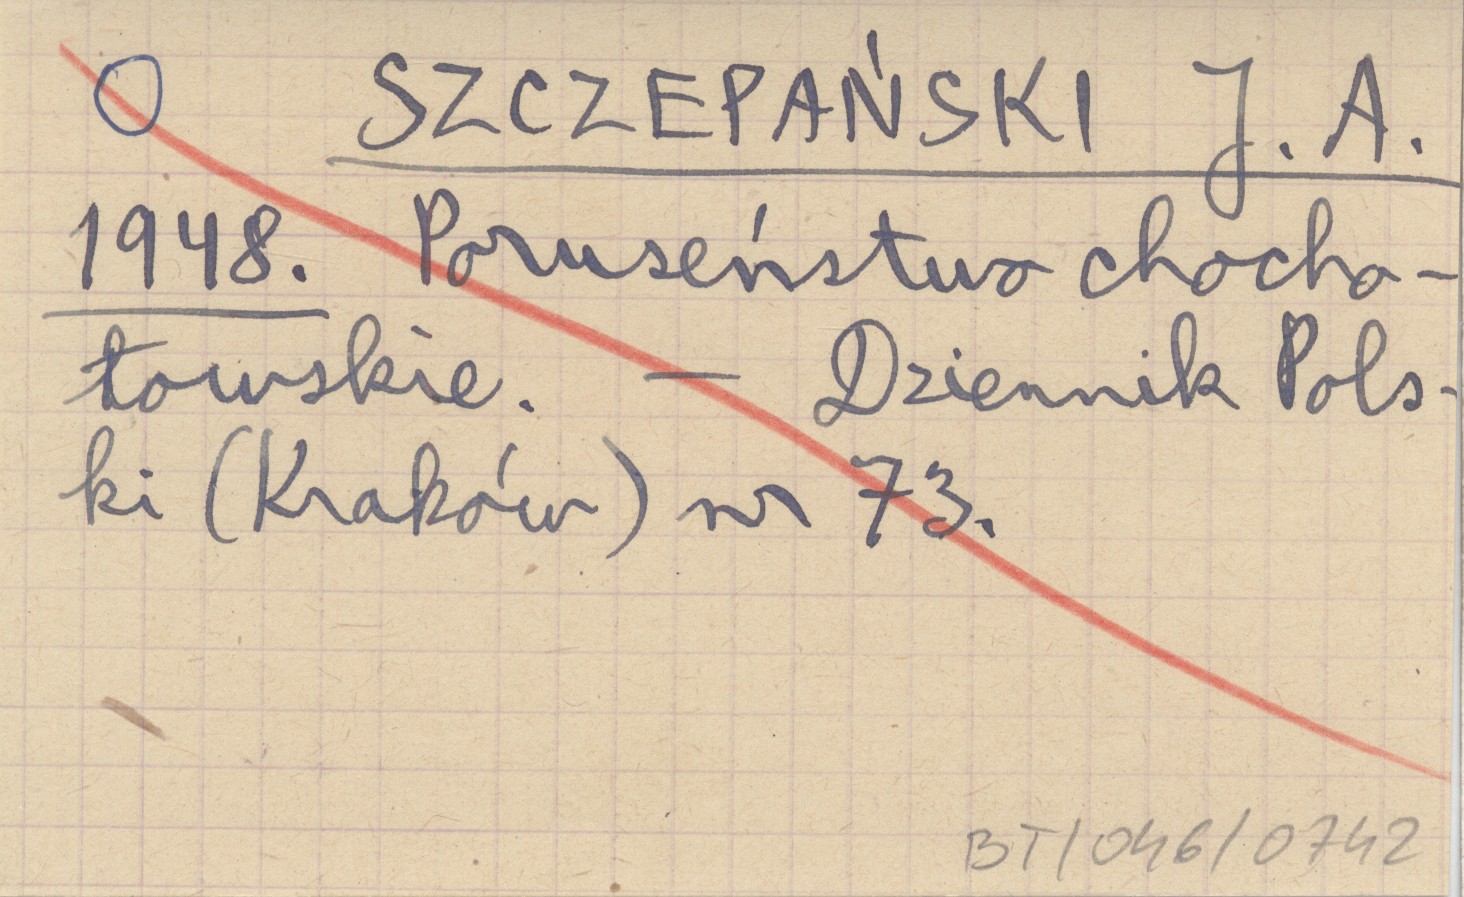 SZCZEPAŃSKI J. A.
1948. Poruseństwo chocho-
łowskie. — Dziennik Pols-
ki (Kraków) nr 73.
BT/046/0742